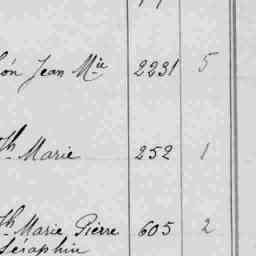 Jean Mie 2231 5
Th Marie 252 1
Th Marie Pierre 605 2
Séraphin